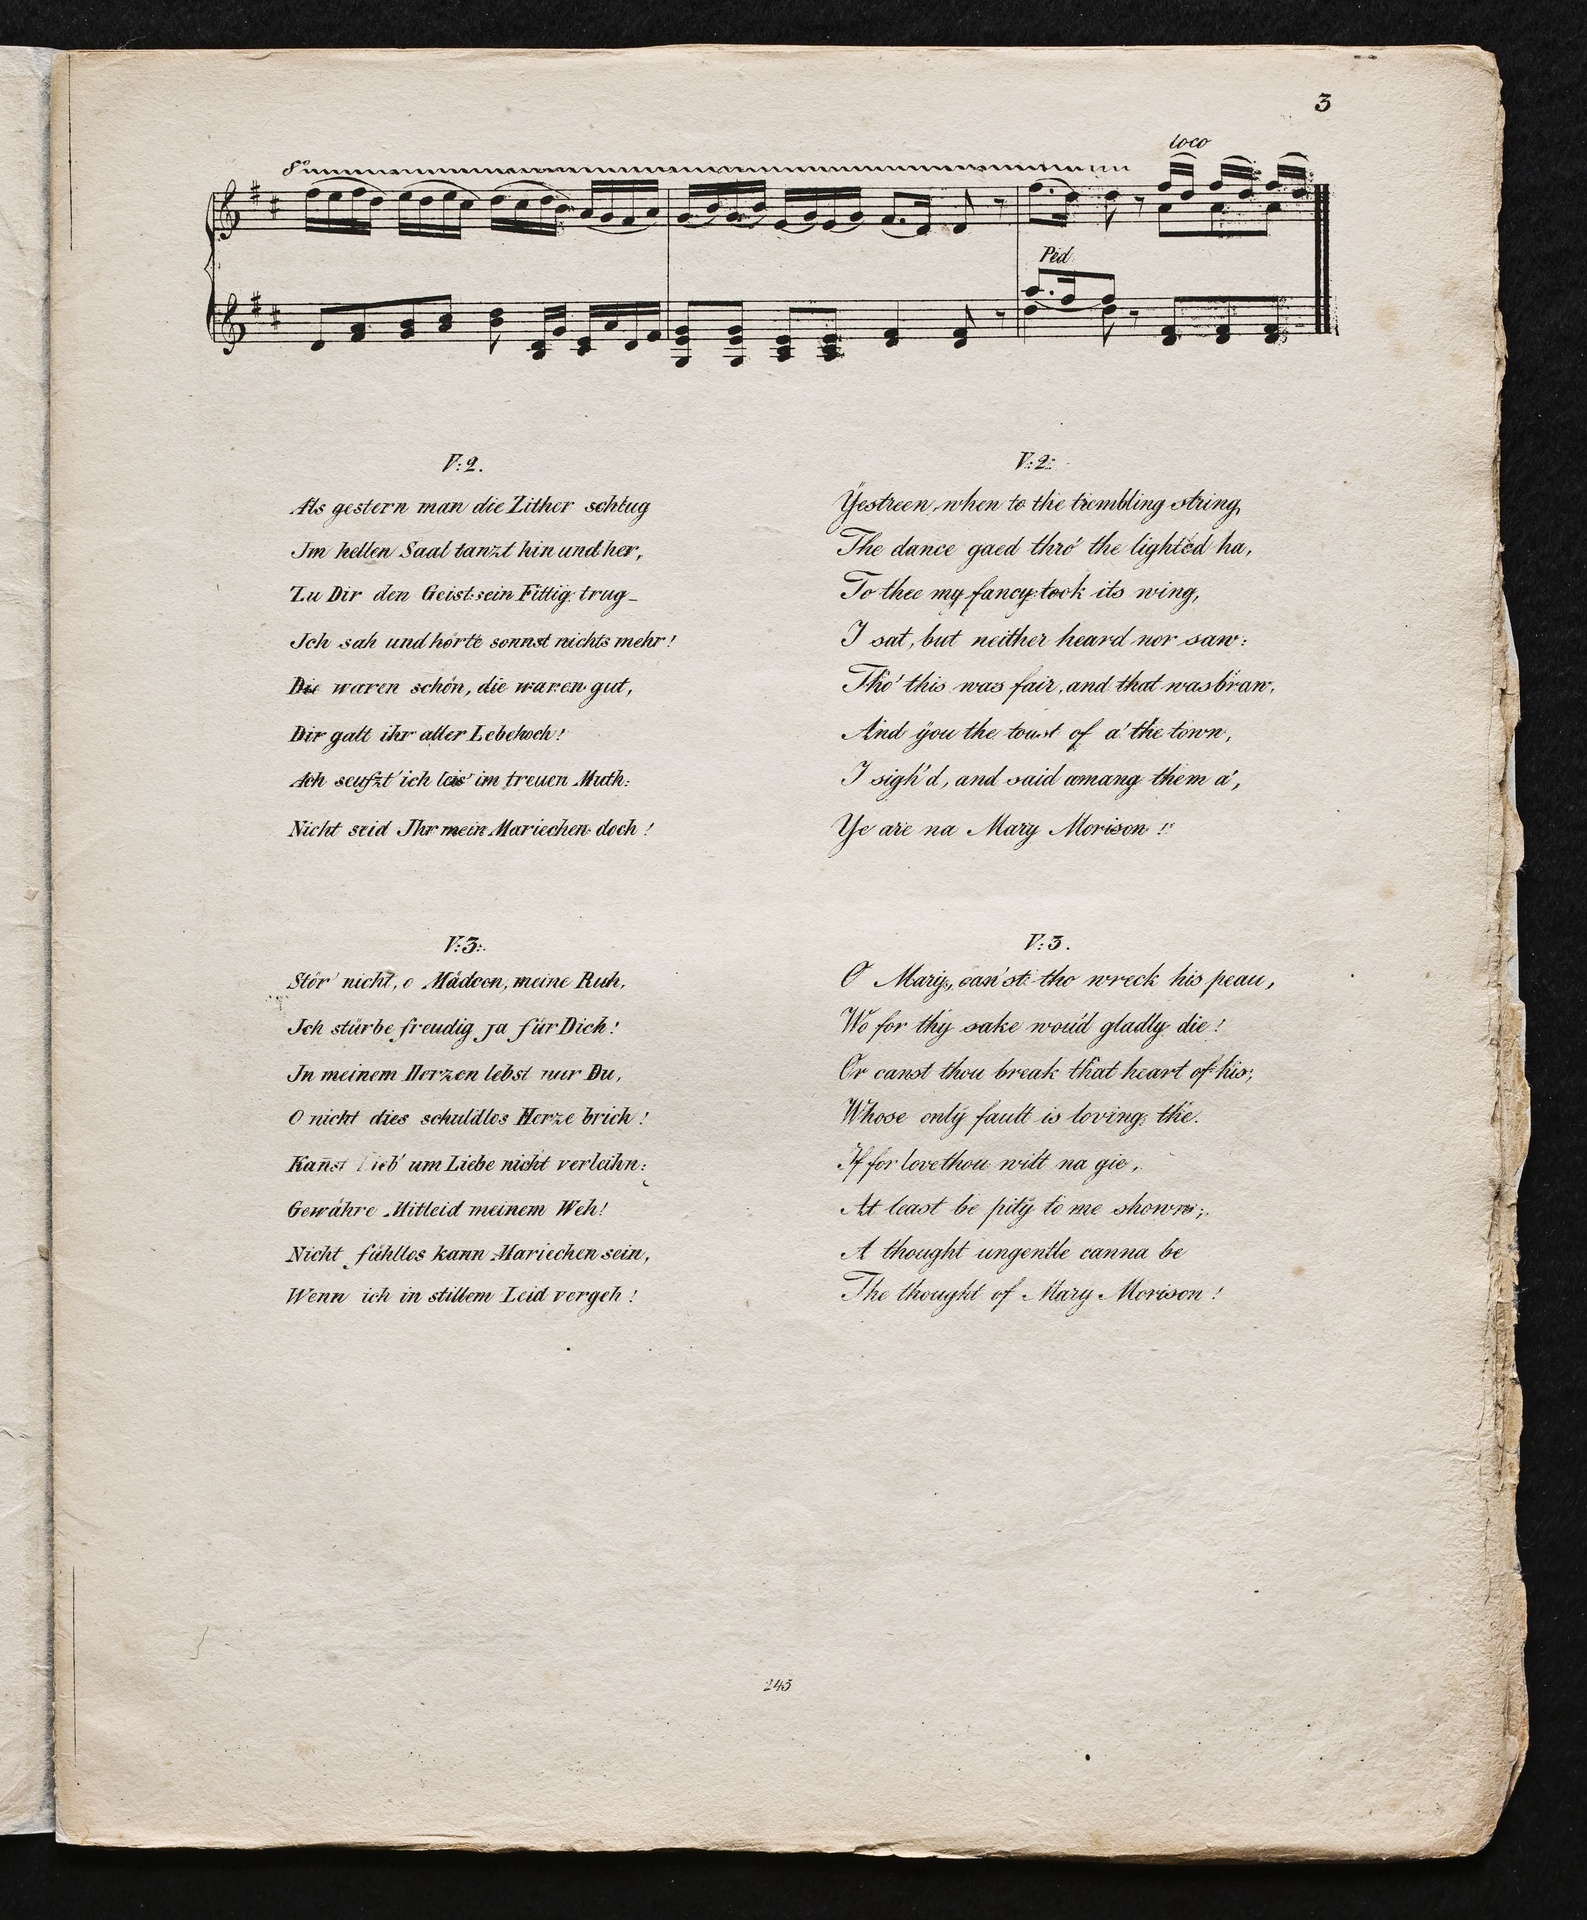 3
8º
loco
Ped
V: 2.
Als gestern man die Zither schlug
Im hellen Saal tanzt hin und her,
Zu Dir den Geist sein Fittig trug_
Ich sah und hörte sonnst nichts mehr!
Die waren schön, die waren gut,
Dir galt ihr aller Lebehoch!
Ach seufzt' ich leis' im treuen Muth:
Nicht seid Ihr mein Mariechen doch!
V: 3:
Stör' nicht, o Mädcen, meine Ruh,
Ich stürbe freudig ja für Dich!
In meinem Herzen lebst nur Du,
O nicht dies schuldlos Herze brich!
Kan̄st Lieb' um Liebe nicht verleihn:
Gewähre Mitleid meinem Weh!
Nicht fühllos kann Mariechen sein,
Wenn ich in stillem Leid vergeh!
V: 2:
Yestreen, when to the trembling string,
The dance gaed thro' the lighted ha,
To thee my fancy took its wing,
I sat, but neither heard nor saw:
Tho' this was fair, and that was braw,
And you the toast of a' the town,
I sigh'd, and said amang them a',
Ye are na Mary Morison!
V: 3.
O Mary, can'st tho wreck his peau,
Wo for thy sake wou'd gladly die!
Or canst thou break that heart of his,
Whose only fault is loving the.
If for love thou wilt na gie,
At least be pity to me shown;
A thought ungentle canna be
The thought of Mary Morison!
245